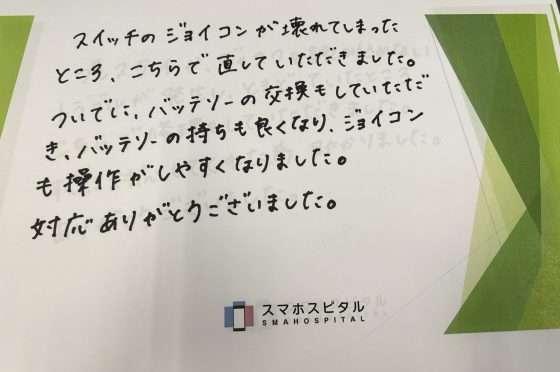 スイッチのジョイコンが壊れてしまった
ところ、こちらで直していただきました。
ついでに、バッテリーの交換もしていただ
き、バッテリーの持ちも良くなり、ジョイコン
も操作がしやすくなりました。
対応ありがとうございました。
スマホスピタル
SMAHOSPITAL